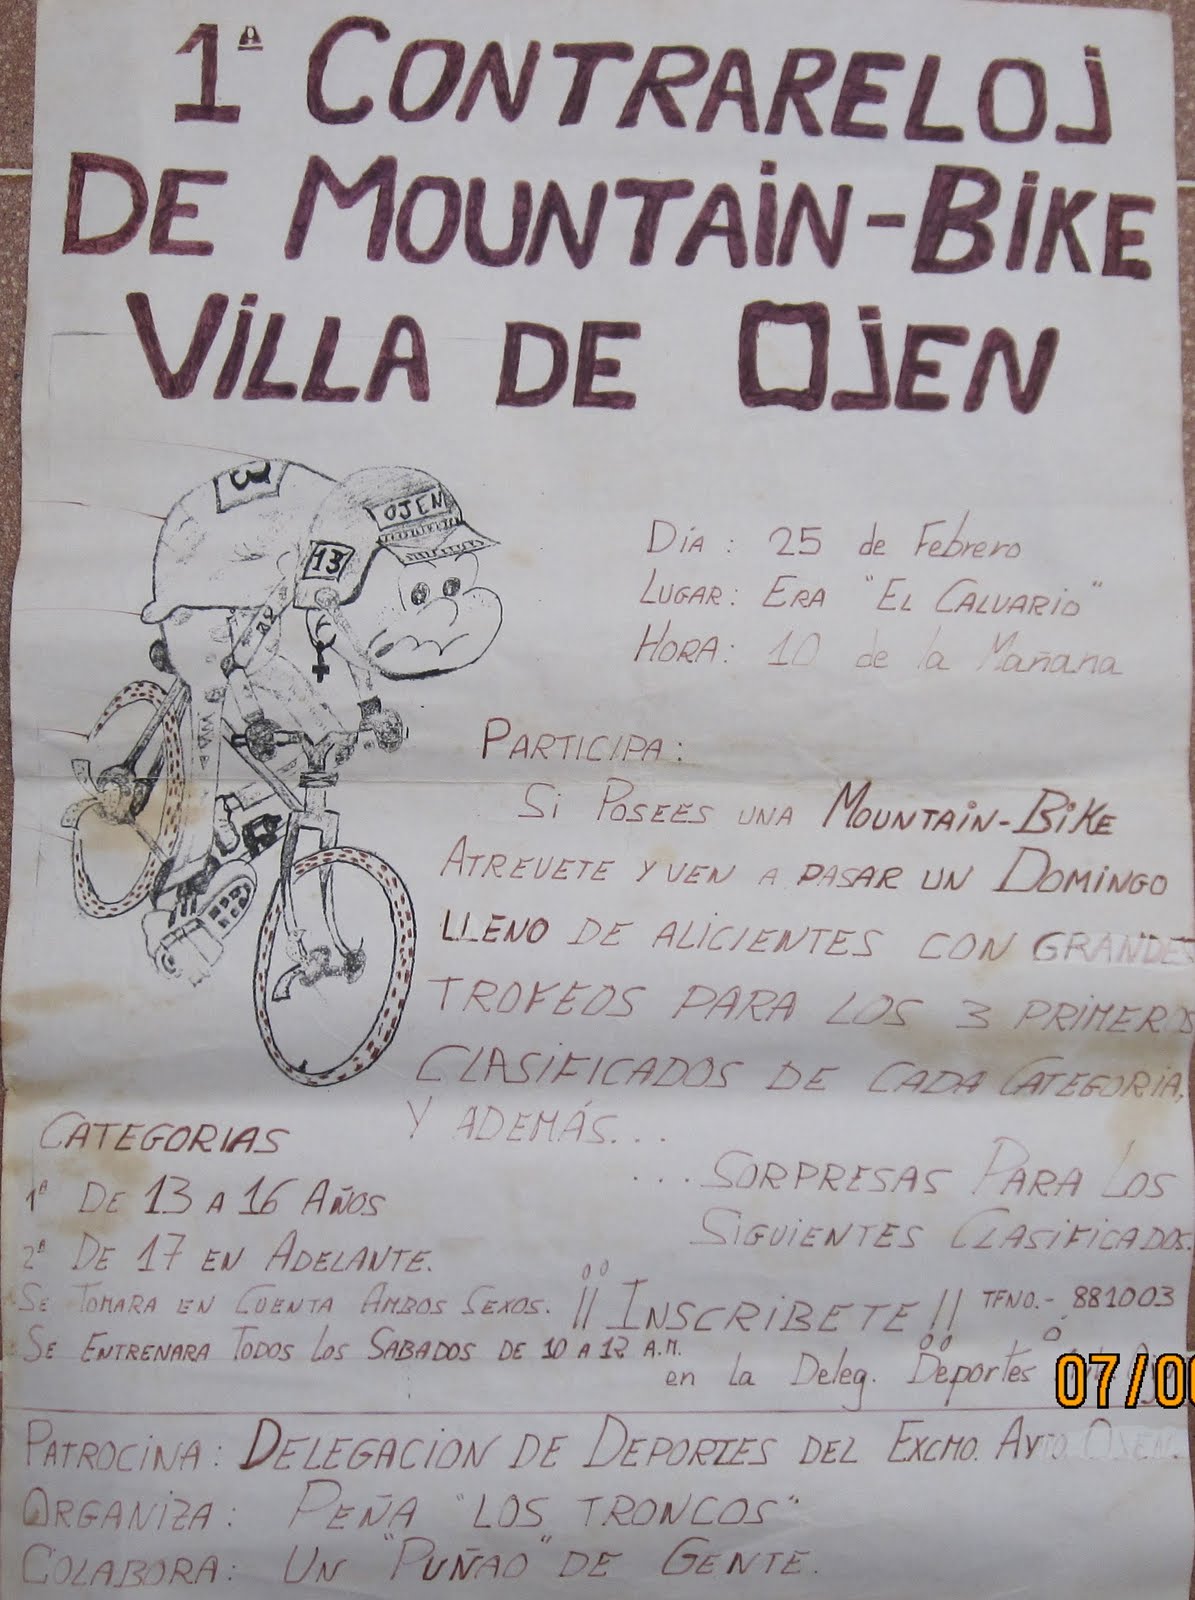 1ª CONTRARELOJ
DE MOUNTAIN-BIKE
VILLA DE OJEN
OJEN
13
DIA: 25 de Febrero
LUGAR: ERA "EL CALVARIO"
HORA: 10 de la Mañana
PARTICIPA:
Si POSEES UNA MOUNTAIN-BIKE
ATREVETE Y VEN A PASAR UN DOMINGO
LLENO DE ALICIENTES CON GRANDES
TROFEOS PARA LOS 3 PRIMEROS
CLASIFICADOS DE CADA CATEGORIA,
Y ADEMÁS...
...SORPRESAS PARA LOS
SIGUIENTES CLASIFICADOS.
CATEGORIAS
1ª DE 13 A 16 AÑOS
2ª DE 17 EN ADELANTE.
SE TOMARA EN CUENTA AMBOS SEXOS.
SE ENTRENARA TODOS LOS SABADOS DE 10 A 12 A.M.
¡¡INSCRIBETE!! TFNO.- 881003
ó
en la Deleg. Deportes
07/0
PATROCINA: DELEGACION DE DEPORTES DEL EXCMO. AYTO. OJEN.
ORGANIZA: PEÑA "LOS TRONCOS"
COLABORA: UN "PUÑAO" DE GENTE.